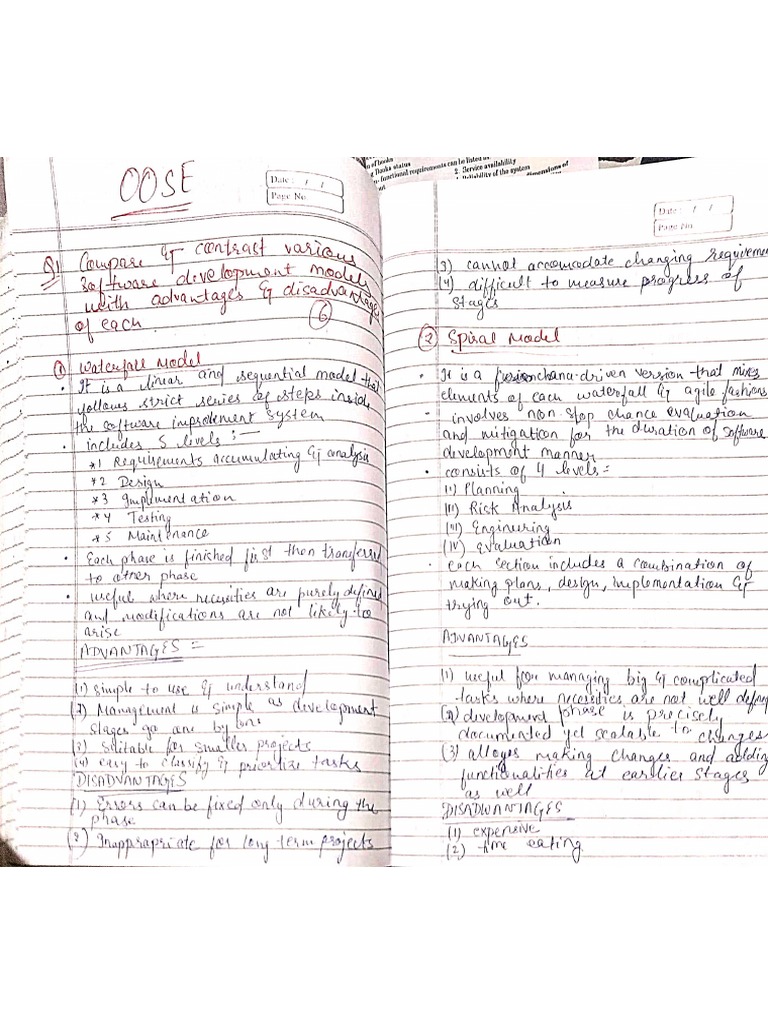 OOSE
Date : / /
Page No.
Q1 Compare & contrast various
software development models
with advantages & disadvantages
of each.
6
① Waterfall Model
• It is a linear and sequential model that
follows strict series of steps inside
the software improvement system
• includes 5 levels :—
*1 Requirements accumulating & analysis
*2 Design
*3 Implementation
*4 Testing
*5 Maintenance
• Each phase is finished first then transferred
to other phase
• useful where necessities are purely defined
and modifications are not likely to
arise
ADVANTAGES =
(1) simple to use & understand
(2) Management is simple as development
stages go one by one
(3) Suitable for smaller projects
(4) easy to classify & prioritize tasks
DISADVANTAGES
(1) Errors can be fixed only during the
phase
(2) Inappropriate for long term projects
of books
Books status
functional requirements can be listed as
2. Service availability
Reliability of the system
dimensions of
Date : / /
Page No.
3) cannot accomodate changing requireme
(4) difficult to measure progress of
stages
② Spiral Model
• It is a chana-driven version that mixes
elements of each waterfall & agile fashions
- involves non-stop chance evaluation
and mitigation for the duration of software
development manner
• consists of 4 levels =
(i) Planning
(ii) Risk Analysis
(iii) Engineering
(iv) Evaluation
• each section includes a combination of
making plans, design, implementation &
trying out.
ADVANTAGES
(1) useful for managing big & complicated
tasks where necessities are not well define
(2) development phase is precisely
documented yet scalable to changes
(3) alloges making changes and adding
functionalities at earlier stages
as well
DISADWANTAGES
(1) expensive
(2) time eating